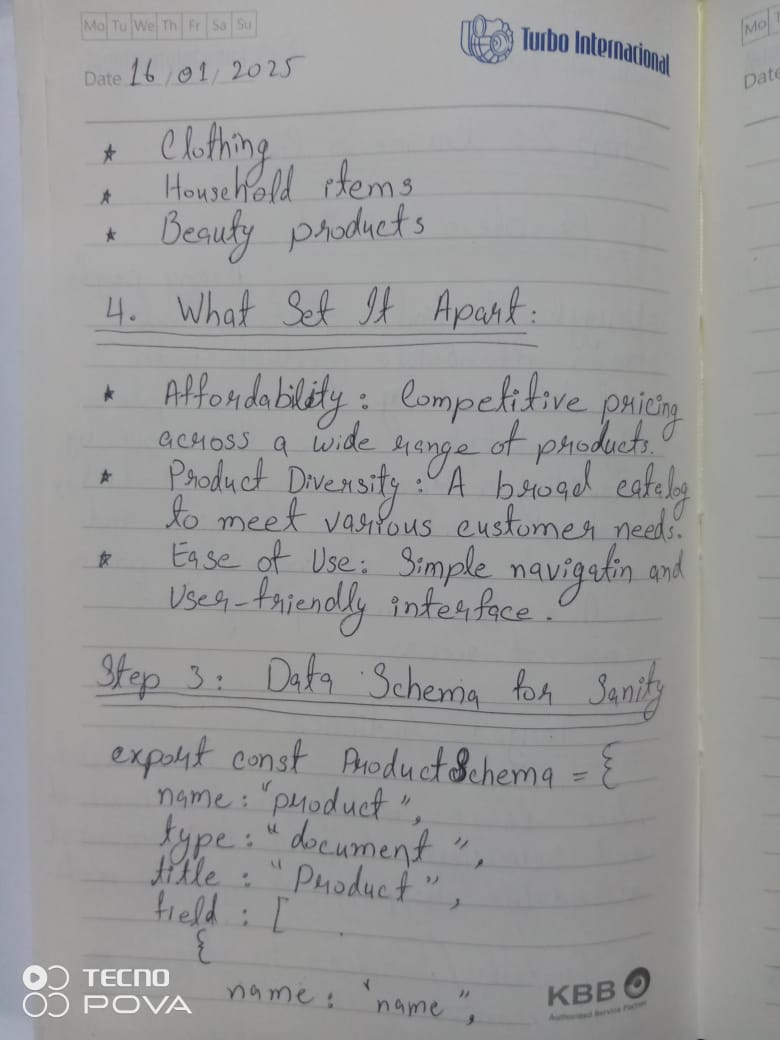 Mo Tu We Th Fr Sa Su
Turbo Internacional
Date 16/01/2025
Mo
Date
* Clothing
* Household items
* Beauty products
4. What Set It Apart:
* Affordability: Competitive pricing
across a wide range of products.
* Product Diversity: A broad catalog
to meet various customer needs.
* Ease of Use: Simple navigatin and
User-friendly interface.
Step 3: Data Schema for Sanity
export const ProductSchema = {
name: "product",
type: "document",
title: "Product",
field: [
{
name: "name",
TECNO
POVA
KBB
Authorised Service Partner